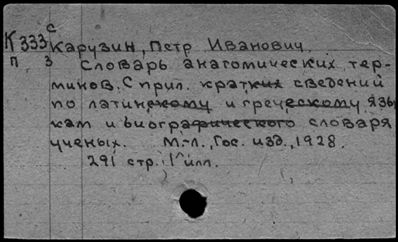 К 333 с Карузин, Петр Иванович.
П. 3 Словарь анатомических тер-
минов. С прил. кратких сведений
по латинскому и греческому язы-
кам и биографического словаря
ученых. М.-Л., Гос. изд., 1928.
291 стр. 1 илл.